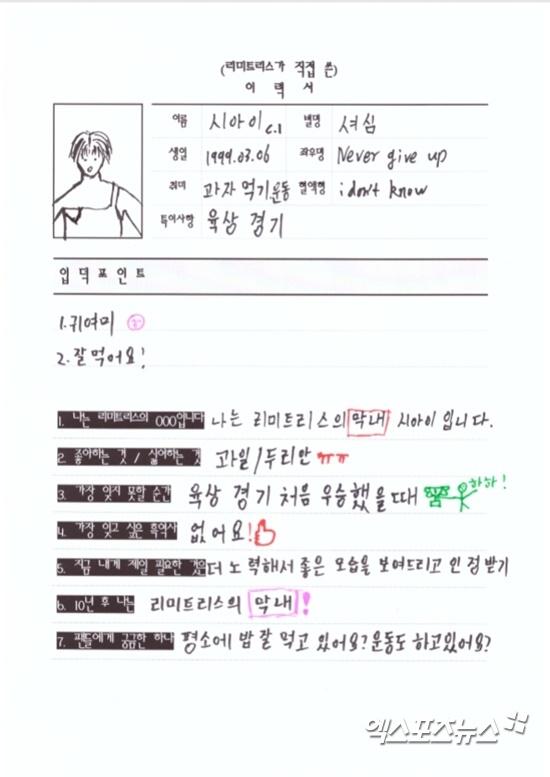 (리미트리스가 직접 쓴)
이 력 서
이름 시아이 C.I 별명 셔심
생일 1999.03.06 좌우명 Never give up
취미 과자 먹기, 운동 혈액형 i don't know
특이사항 육상 경기
입 덕 포 인 트
1. 귀여미
2. 잘 먹어요!
1. 나는 리미트리스의 OOO입니다 나는 리미트리스의 막내 시아이 입니다.
2. 좋아하는 것 / 싫어하는 것 과일/두리안 ㅠㅠ
3. 가장 잊지 못할 순간 육상 경기 처음 우승했을 때 하하!
4. 가장 잊고 싶은 흑역사 없어요!
5. 지금 내게 제일 필요한 것은 더 노력해서 좋은 모습을 보여드리고 인정받기
6. 10년 후 나는 리미트리스의 막내!
7. 팬들에게 궁금한 하나 평소에 밥 잘 먹고 있어요? 운동도 하고있어요?
엑스포츠뉴스